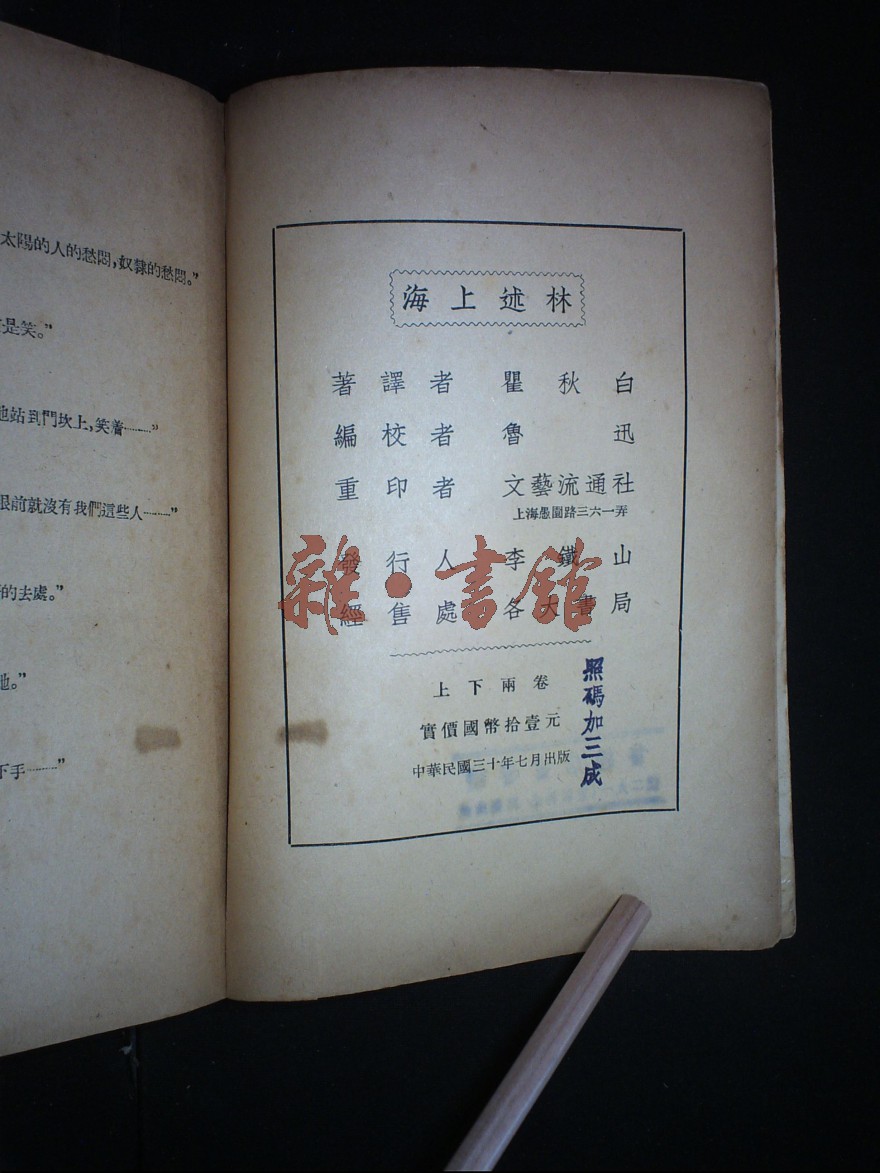 太陽的人的愁悶，奴隸的愁悶。”
是笑。”
站到門坎上，笑着——”
眼前就沒有我們這些人——”
的去處。”
地。”
下手——”
海上述林
著譯者 瞿秋白
編校者 魯迅
重印者 文藝流通社
上海愚園路三六一弄
發行人 李鐵山
經售處 各大書局
雜·書館
上下兩卷
實價國幣拾壹元
中華民國三十年七月出版
照碼加三成